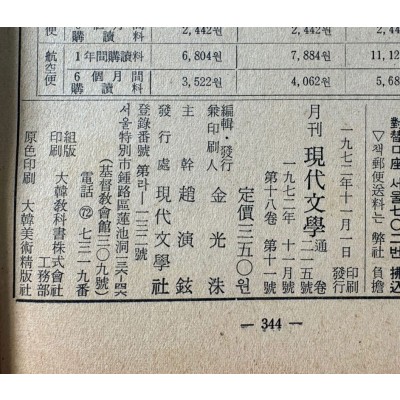 便
購讀料
2,442원
2,442원
航空便
1年間購讀料
6,804원
7,884원
11,12
6個月間購讀料
3,522원
4,062원
5,68
一九七二年十一月一日 印刷 發行
月刊 現代文學 通卷 二一五號
一九七二年 十一月號
第十八卷 第十一號
定價三五〇원
編輯・發行 兼印刷人 金光洙
主幹 趙演鉉
發行處 現代文學社
登錄番號 第라—一三二號
서울特別市鍾路區蓮池洞
(基督教會館三〇九號)
電話 ㊆ 七三二九番
組版 印刷 大韓敎科書株式會社 工務部
原色印刷 大韓美術精版社
— 344 —